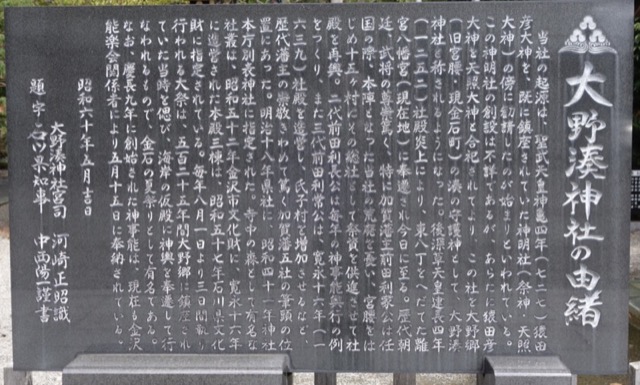 大野湊神社の由緒
当社の起源は、聖武天皇神亀四年(七二七)猿田
彦大神を、既に鎮座されていた神明社(祭神・天照
大神)の傍に勧請したのが始まりといわれている。
この神明社の創設は不詳であるが、あらたに猿田彦
大神と天照大神と合祀されてより、この社を大野郷
(旧宮腰、現金石町)の湊の守護神として、大野湊
神社と称されるようになった。後深草天皇建長四年
(一二五二)社殿炎上により、東八丁をへだてた離
宮八幡宮(現在地)に奉遷され今日に至る。歴代朝
廷、武将の尊崇篤く、特に加賀藩主前田利家公は任
国の際、本陣となった当社の荒廃を憂い、宮腰をは
じめ十五ヶ村にその総社として祭資を供進させて社
殿を再興、二代前田利長公は毎年の神事能興行の例
をつくり、また三代前田利常公は、寛永十六年(一
六三九)社殿を造営し、氏子村を増加させるなど、
歴代藩主の崇敬きわめて篤く加賀藩五社の筆頭の位
置にあった。明治十八年県社に、昭和四十一年神社
本庁別表神社に指定された。寺中の森として有名な
社叢は、昭和五十二年金沢市文化財に、寛永十六年
に造営された本殿三棟は、昭和五十七年石川県文化
財に指定されている。毎年八月一日より三日間執り
行われる大祭は、五百二十五年間大野郷に鎮座され
ていた当時を偲び、海岸の仮殿に神輿を奉遷して行
なわれるもので、金石の夏祭りとして有名である。
なお、慶長九年に創始された神事能は、現在も金沢
能楽会関係者により五月十五日に奉納されている。
昭和六十年五月吉日
大野湊神社宮司 河崎正昭識
題字 石川県知事 中西陽一謹書